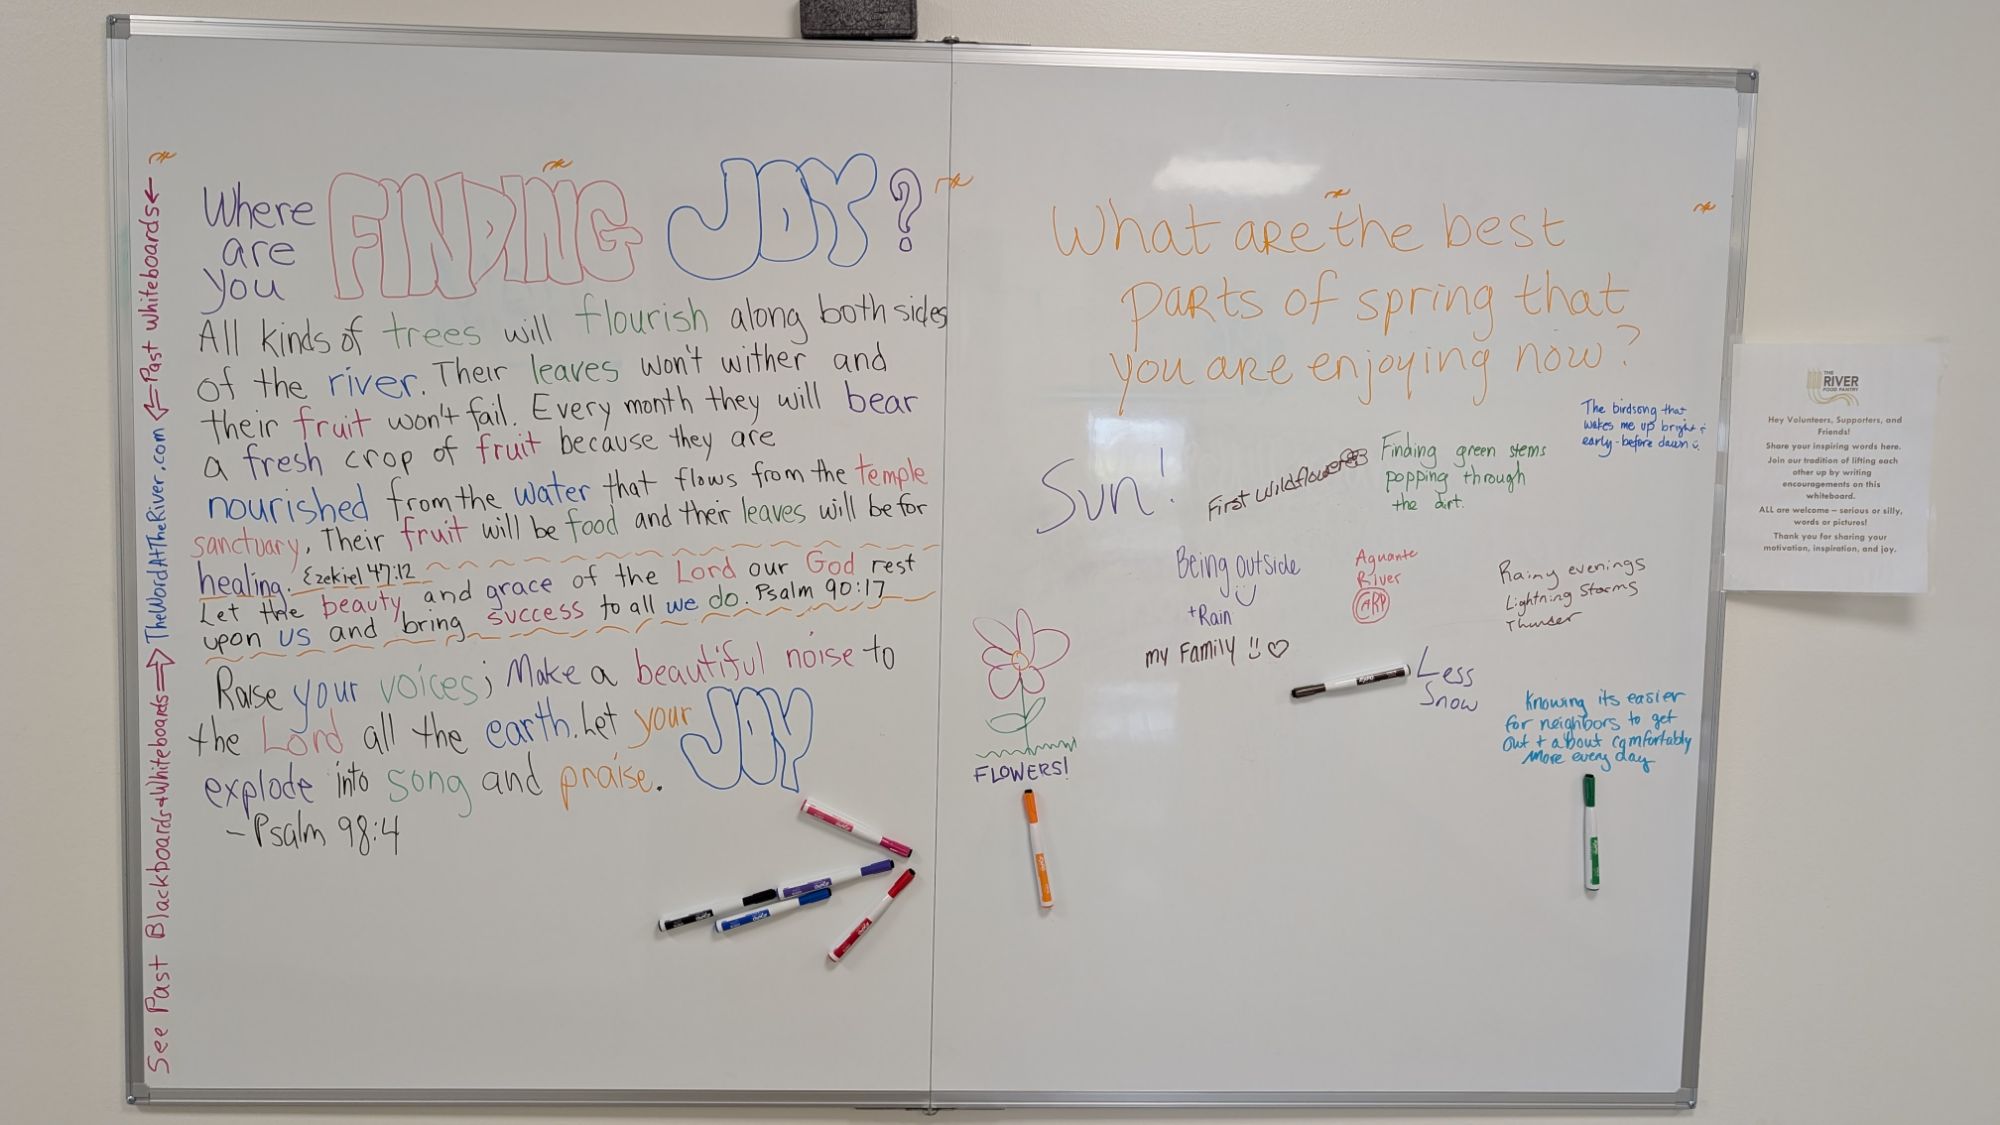 Where
are
you
FINDING JOY?
All kinds of trees will flourish along both sides
of the river. Their leaves won't wither and
their fruit won't fail. Every month they will bear
a fresh crop of fruit because they are
nourished from the water that flows from the temple
sanctuary. Their fruit will be food and their leaves will be for
healing. Ezekiel 47:12
Let the beauty and grace of the Lord our God rest
upon us and bring success to all we do. Psalm 90:17
Raise your voices; Make a beautiful noise to
the Lord all the earth. Let your JOY
explode into song and praise.
- Psalm 98:4
See Past Blackboards + Whiteboards → TheWordAtTheRiver.com ← Past whiteboards ←
What are the best
parts of spring that
you are enjoying now?
The birdsong that
wakes me up bright +
early - before dawn
Sun!
First wildflowers
Finding green stems
popping through
the dirt.
Being outside
+Rain
my Family
Aguante
River
CARP
Rainy evenings
Lightning storms
Thunder
Less
Snow
Knowing its easier
for neighbors to get
out + about comfortably
more every day
FLOWERS!
THE
RIVER
FOOD PANTRY
Hey Volunteers, Supporters, and
Friends!
Share your inspiring words here.
Join our tradition of lifting each
other up by writing
encouragements on this
whiteboard.
ALL are welcome – serious or silly,
words or pictures!
Thank you for sharing your
motivation, inspiration, and joy.